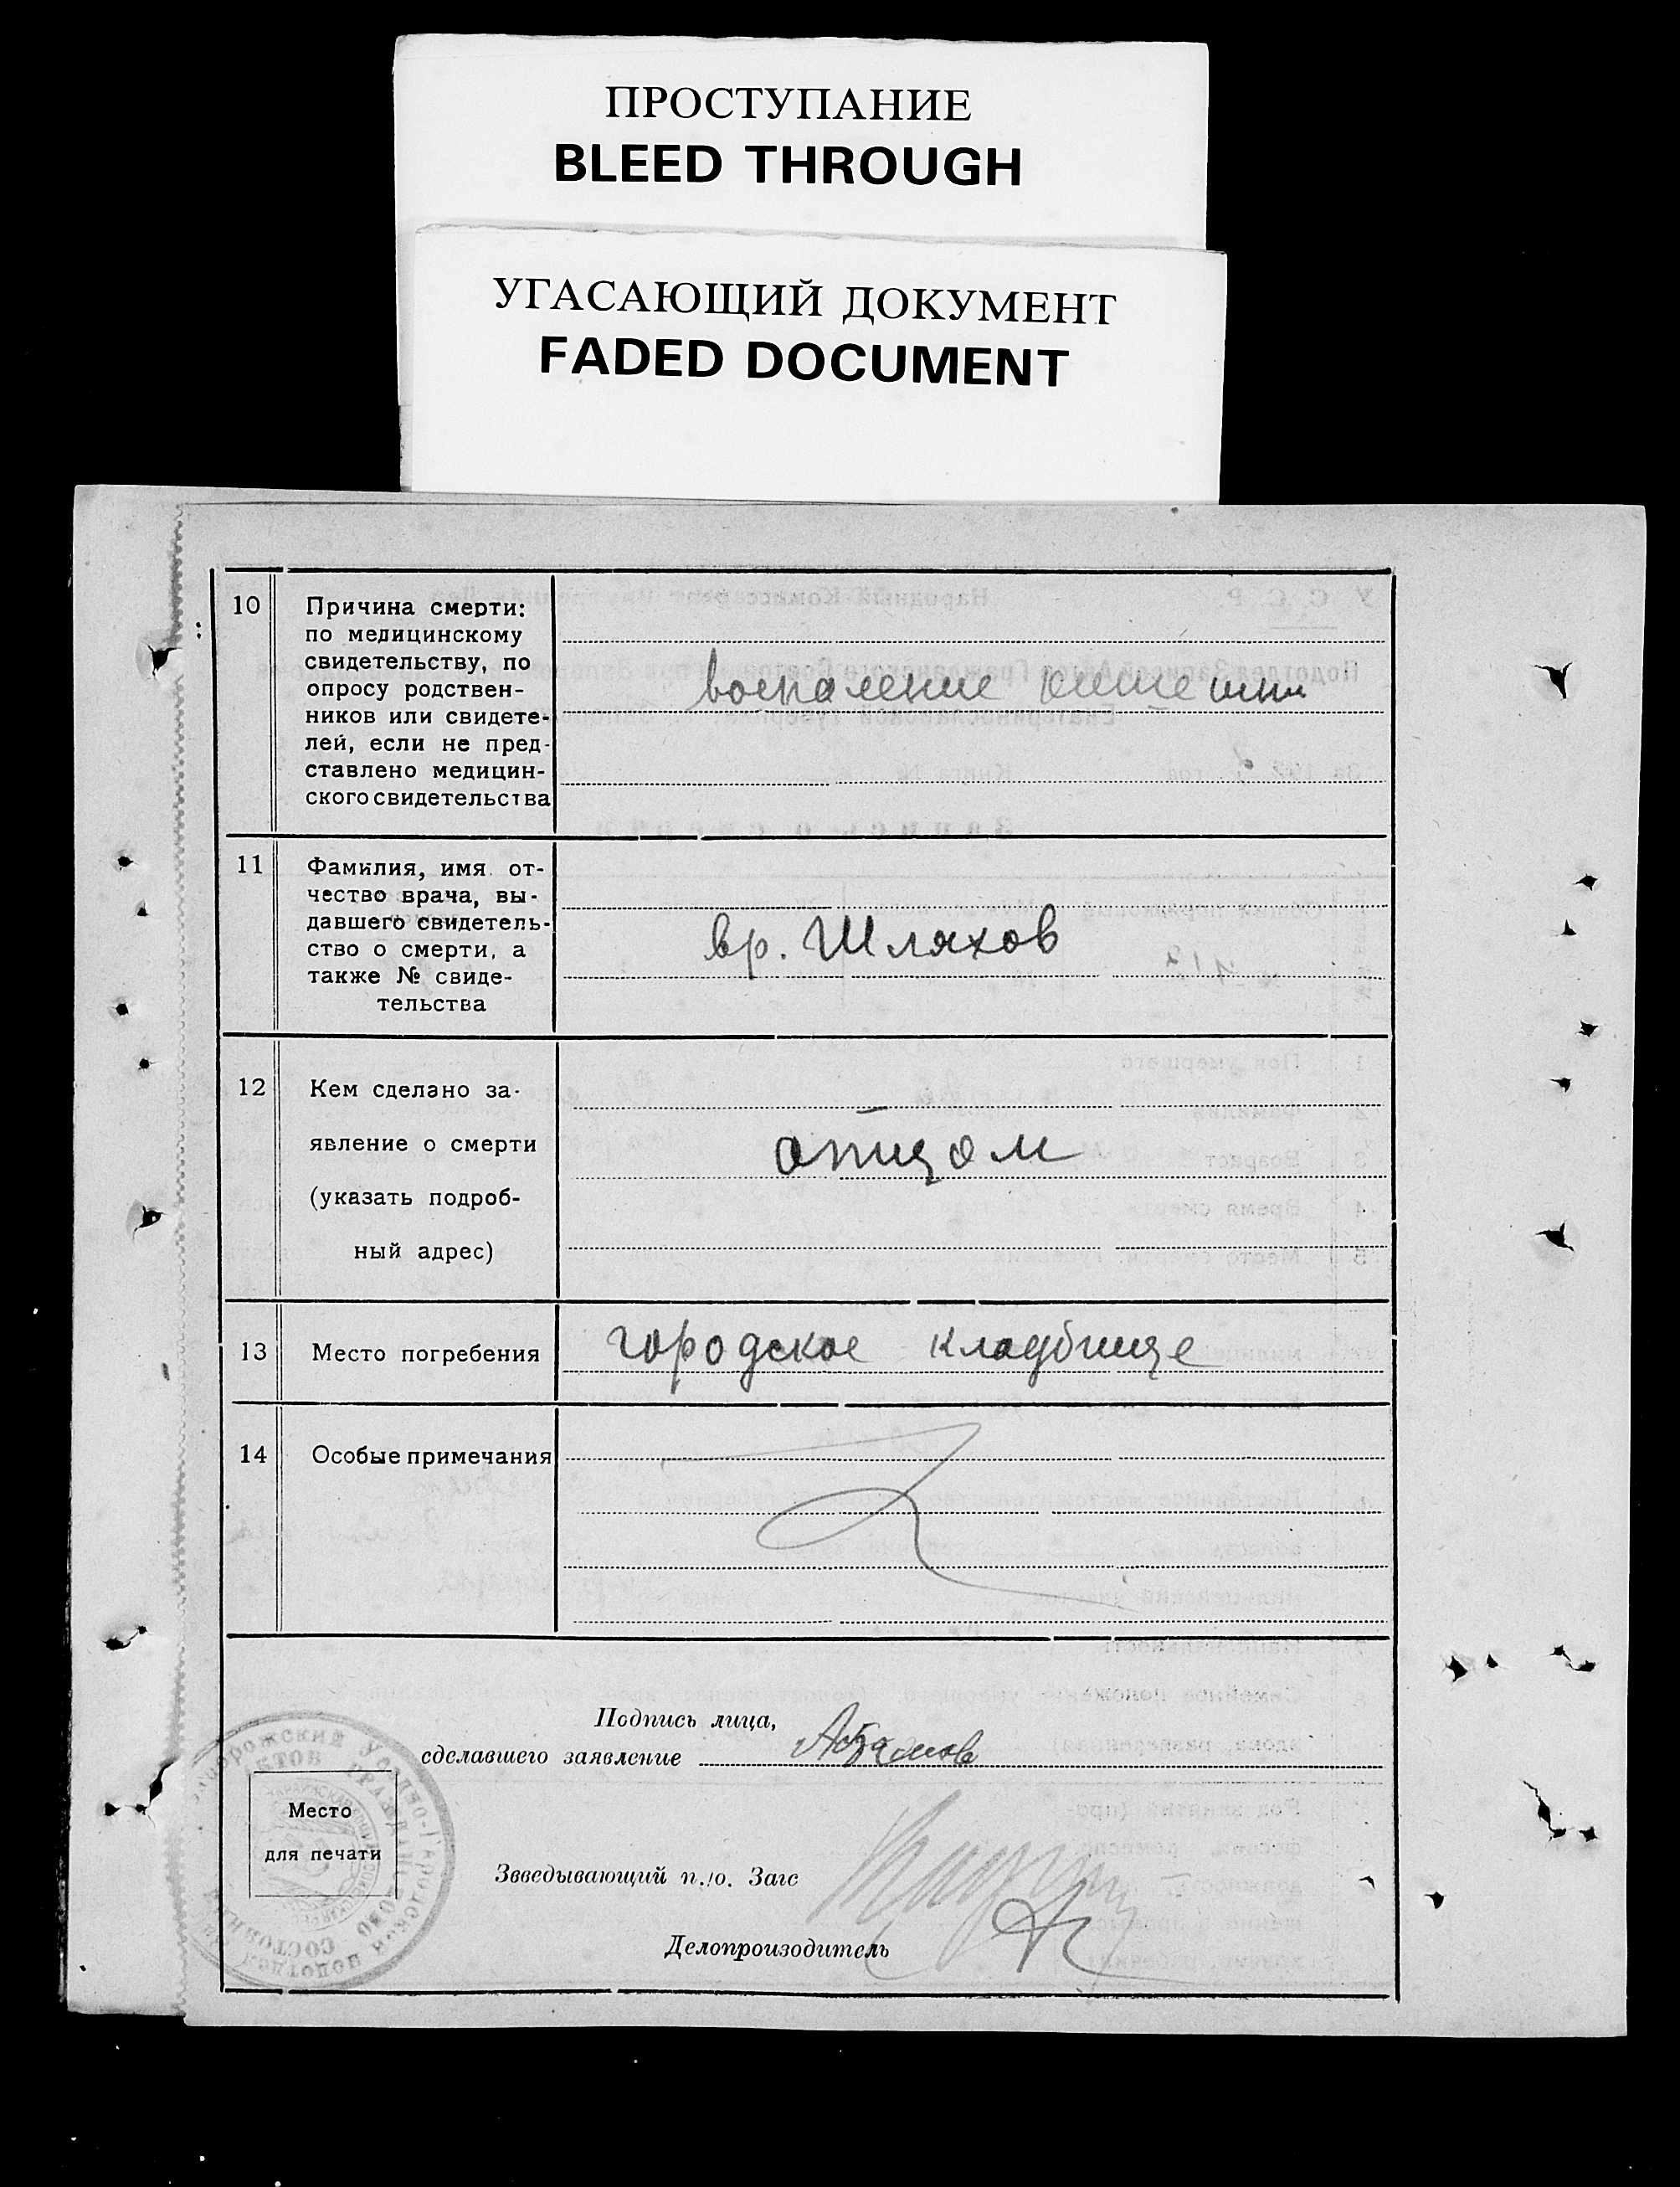 ПРОСТУПАНИЕ
BLEED THROUGH
УГАСАЮЩИЙ ДОКУМЕНТ
FADED DOCUMENT
10 Причина смерти:
по медицинскому
свидетельству, по
опросу родствен-
ников или свидете-
лей, если не пред-
ставлено медицин-
ского свидетельства
воспаление кишешни
11 Фамилия, имя от-
чество врача, вы-
давшего свидетель-
ство о смерти, а
также № свиде-
тельства
вр. Шляхов
12 Кем сделано за-
явление о смерти
(указать подроб-
ный адрес)
отцом
13 Место погребения городское кладбище
14 Особые примечания
Подпись лица,
сделавшего заявление
Место
для печати
Звведывающий п./о. Загс
Делопроизводитель